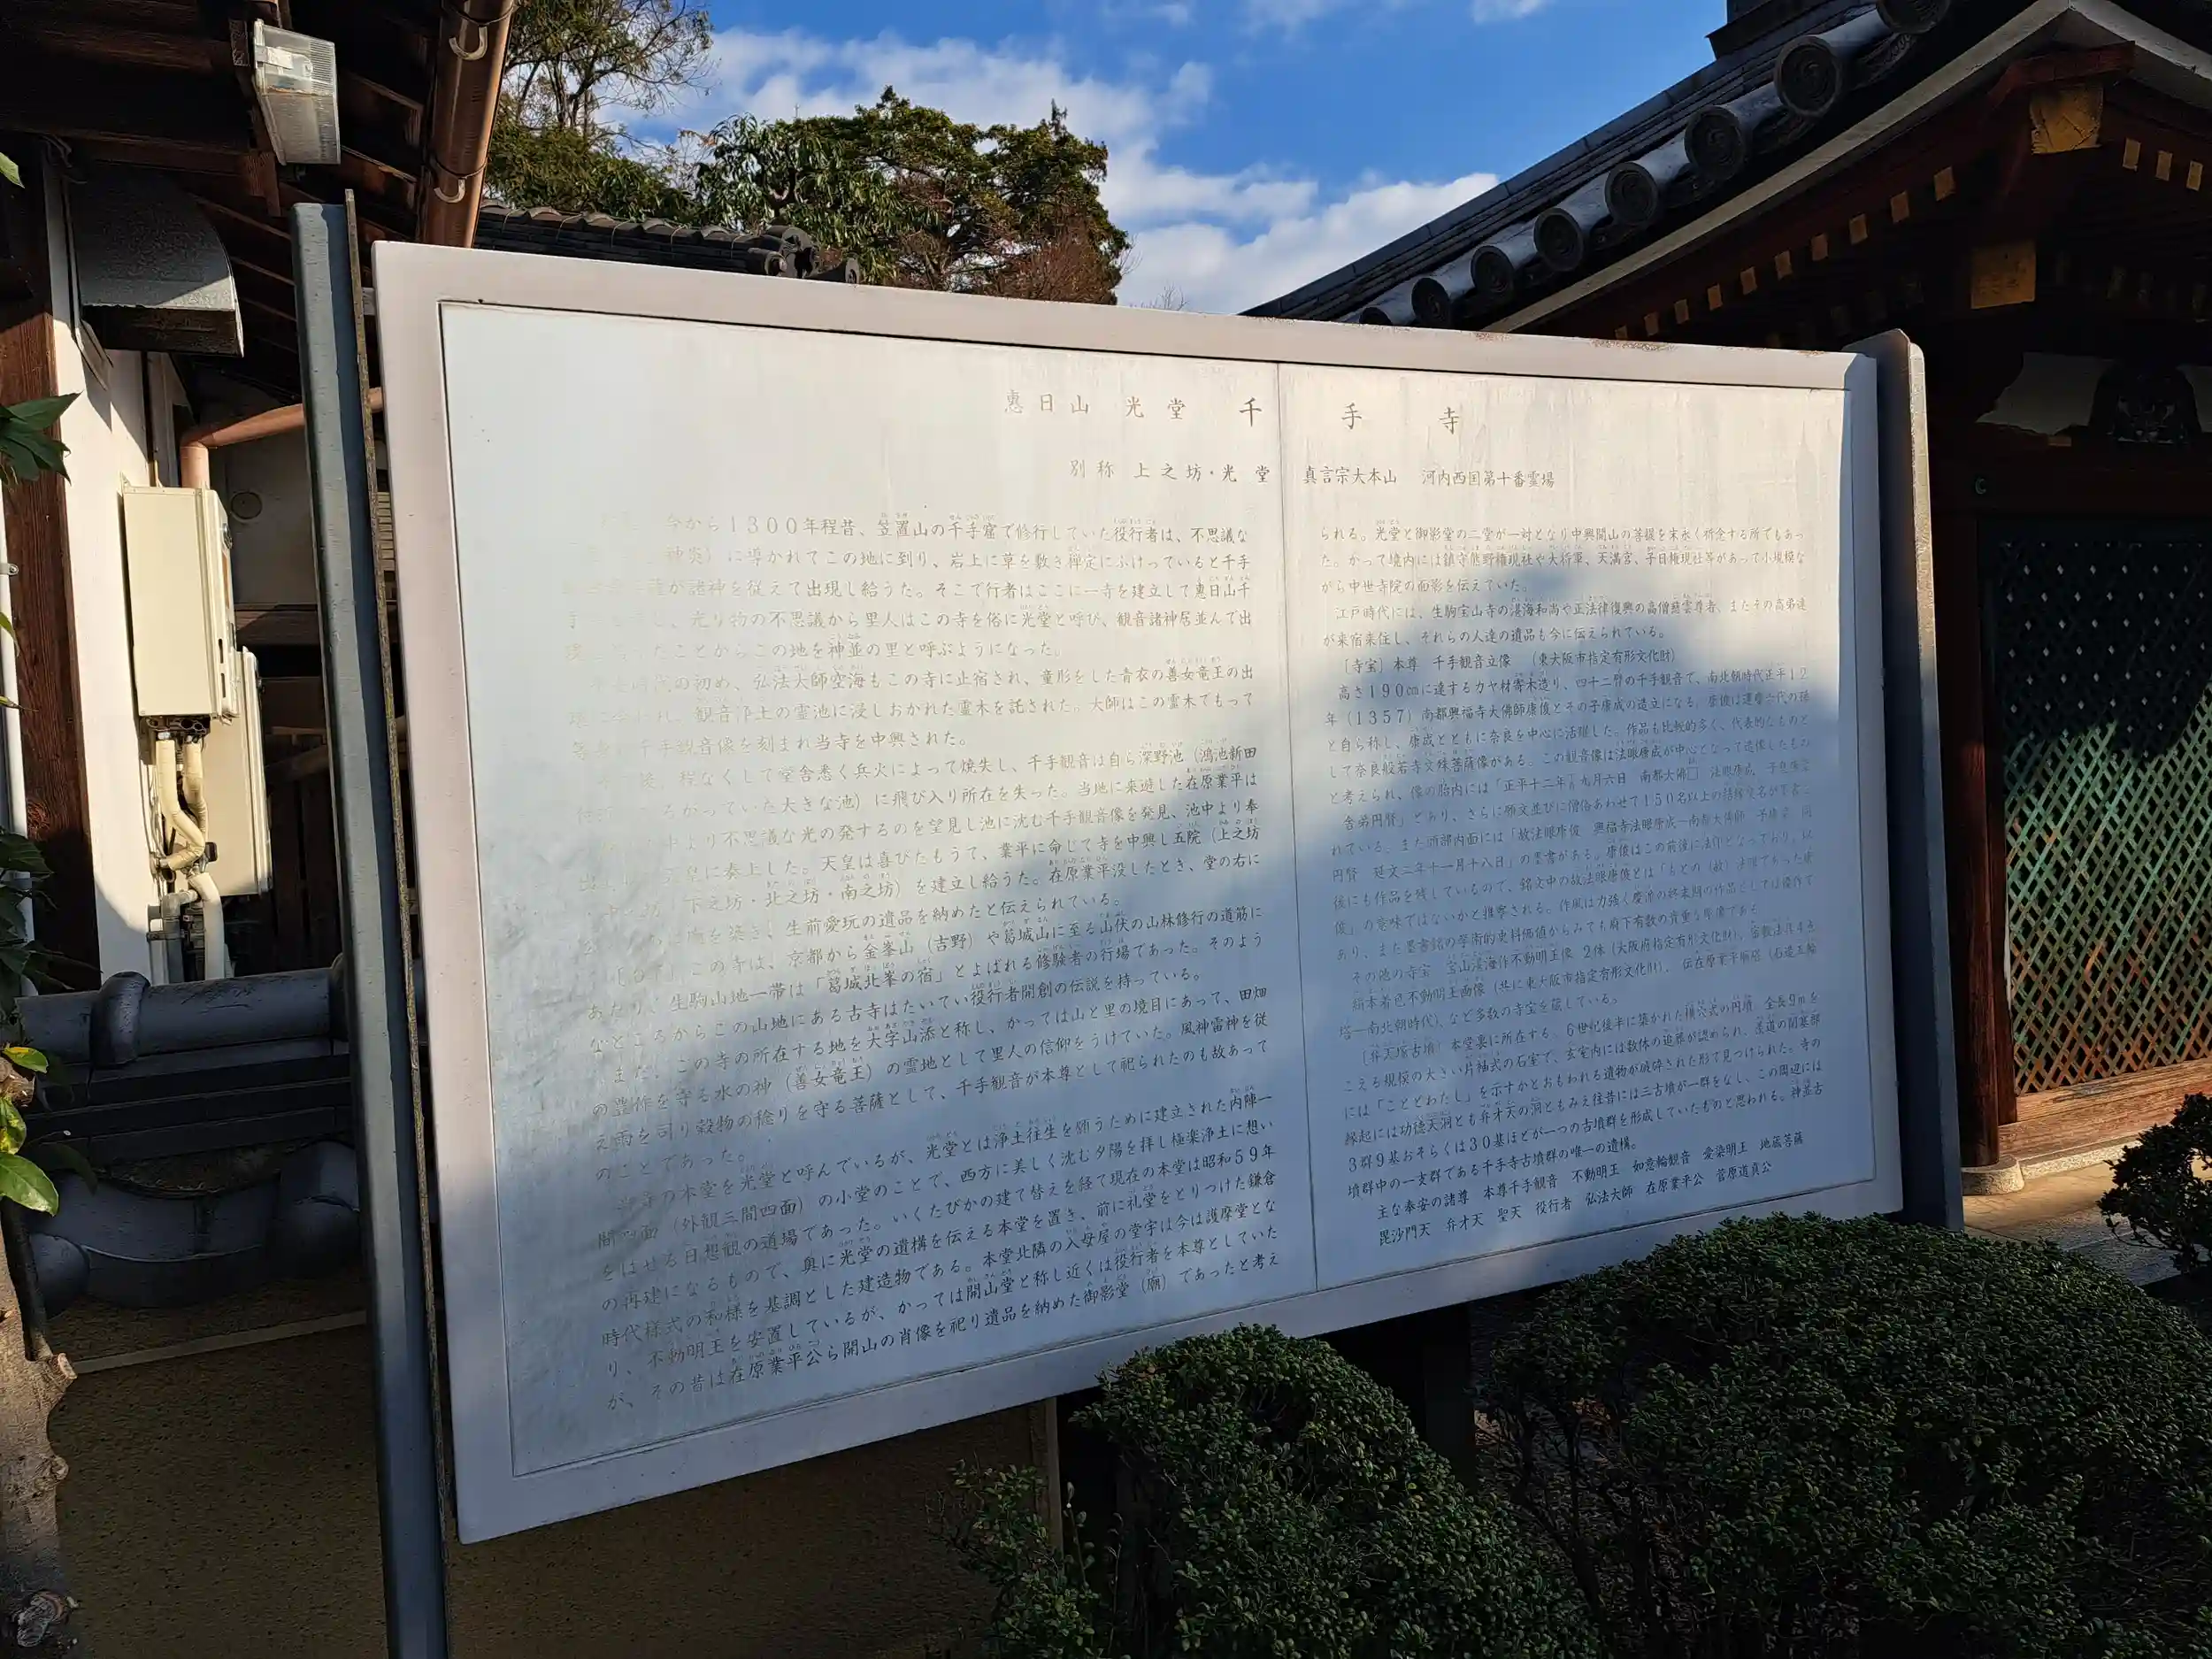 惠日山 光堂 千手寺
別称 上之坊・光堂 真言宗大本山 河内西国第十番霊場
今から1300年程昔、笠置山の千手窟で修行していた役行者は、不思議な
神炎)に導かれてこの地に到り、岩上に草を敷き禅定にふけっていると千手
が諸神を従えて出現し給うた。そこで行者はここに一寺を建立して惠日山千
手 、光り物の不思議から里人はこの寺を俗に光堂と呼び、観音諸神居並んで出
たことからこの地を神並の里と呼ぶようになった。
の初め、弘法大師空海もこの寺に止宿され、童形をした青衣の善女竜王の出
観音浄土の霊池に浸しおかれた霊木を託された。大師はこの霊木でもって
千手観音像を刻まれ当寺を中興された。
後、程なくして堂舎悉く兵火によって焼失し、千手観音は自ら深野池(鴻池新田
がっていた大きな池)に飛び入り所在を失った。当地に来遊した在原業平は
中より不思議な光の発するのを望見し池に沈む千手観音像を発見、池中より奉
出 皇に奏上した。天皇は喜びたもうて、業平に命じて寺を中興し五院(上之坊
下之坊・北之坊・南之坊)を建立し給うた。在原業平没したとき、堂の右に
を築き、生前愛玩の遺品を納めたと伝えられている。
この寺は、京都から金峯山(吉野)や葛城山に至る山伏の山林修行の道筋に
あたり、生駒山地一帯は「葛城北峯の宿」とよばれる修験者の行場であった。そのよう
なところからこの山地にある古寺はたいてい役行者開創の伝説を持っている。
また、この寺の所在する地を大字山添と称し、かっては山と里の境目にあって、田畑
の豊作を守る水の神(善女竜王)の霊地として里人の信仰をうけていた。風神雷神を従
え雨を司り穀物の稔りを守る菩薩として、千手観音が本尊として祀られたのも故あって
のことであった。
当寺の本堂を光堂と呼んでいるが、光堂とは浄土往生を願うために建立された内陣一
間四面(外観三間四面)の小堂のことで、西方に美しく沈む夕陽を拝し極楽浄土に想い
をはせる日想観の道場であった。いくたびかの建て替えを経て現在の本堂は昭和59年
の再建になるもので、奥に光堂の遺構を伝える本堂を置き、前に礼堂をとりつけた鎌倉
時代様式の和様を基調とした建造物である。本堂北隣の入母屋の堂宇は今は護摩堂とな
り、不動明王を安置しているが、かっては開山堂と称し近くは役行者を本尊としていた
が、その昔は在原業平公ら開山の肖像を祀り遺品を納めた御影堂(廟)であったと考え
られる。光堂と御影堂の二堂が一対となり中興開山の菩提を末永く祈念する所でもあっ
た。かって境内には鎮守熊野権現社や大将軍、天満宮、子日権現社等があって小規模な
がら中世寺院の面影を伝えていた。
江戸時代には、生駒宝山寺の湛海和尚や正法律復興の高僧慈雲尊者、またその高弟達
が来宿来住し、それらの人達の遺品も今に伝えられている。
〔寺宝〕本尊 千手観音立像 (東大阪市指定有形文化財)
高さ190㎝に達するカヤ材寄木造り、四十二臂の千手観音で、南北朝時代正平12
年(1357)南都興福寺大佛師康俊とその子康成の造立になる。康俊は運慶六代の孫
と自ら称し、康成とともに奈良を中心に活躍した。作品も比較的多く、代表的なものと
して奈良般若寺文殊菩薩像がある。この観音像は法眼康成が中心となって造像したもの
と考えられ、像の胎内には「正平十二年 九月六日 南都大佛 法眼康成
舎弟円賢」とあり、さらに願文並びに僧俗あわせて150名以上の結縁交名が墨書
れている。また頭部内面には「故法眼康俊 興福寺法眼康成一南都大佛師
円賢 延文二年十一月十八日」の墨書がある。康俊はこの前後に法印となっており、以
後にも作品を残しているので、銘文中の故法眼康俊とは「もとの(故)法眼であった康
俊」の意味ではないかと推察される。作風は力強く慶派の終末期の作品としては傑作で
あり、また墨書銘の学術的史料価値からみても府下有数の貴重な尊像である。
その他の寺宝 宝山湛海作不動明王像 2体(大阪府指定有形文化財)、密教法具4点
絹本着色不動明王画像(共に東大阪市指定有形文化財)、伝在原業平廟塔(石造五輪
塔―南北朝時代)、など多数の寺宝を蔵している。
〔弁天塚古墳〕本堂裏に所在する、6世紀後半に築かれた横穴式の円墳、全長9mを
こえる規模の大きい片袖式の石室で、玄室内には数体の追葬が認められ、羨道の閉塞部
には「ことどわたし」を示すかとおもわれる遺物が破砕された形で見つけられた。寺の
縁起には功徳天洞とも弁才天の洞ともみえ往昔には三古墳が一群をなし、この周辺には
3群9基おそらくは30基ほどが一つの古墳群を形成していたものと思われる。神並古
墳群中の一支群である千手寺古墳群の唯一の遺構。
主な奉安の諸尊 本尊千手観音 不動明王 如意輪観音 愛染明王 地蔵菩薩
毘沙門天 弁才天 聖天 役行者 弘法大師 在原業平公 菅原道真公